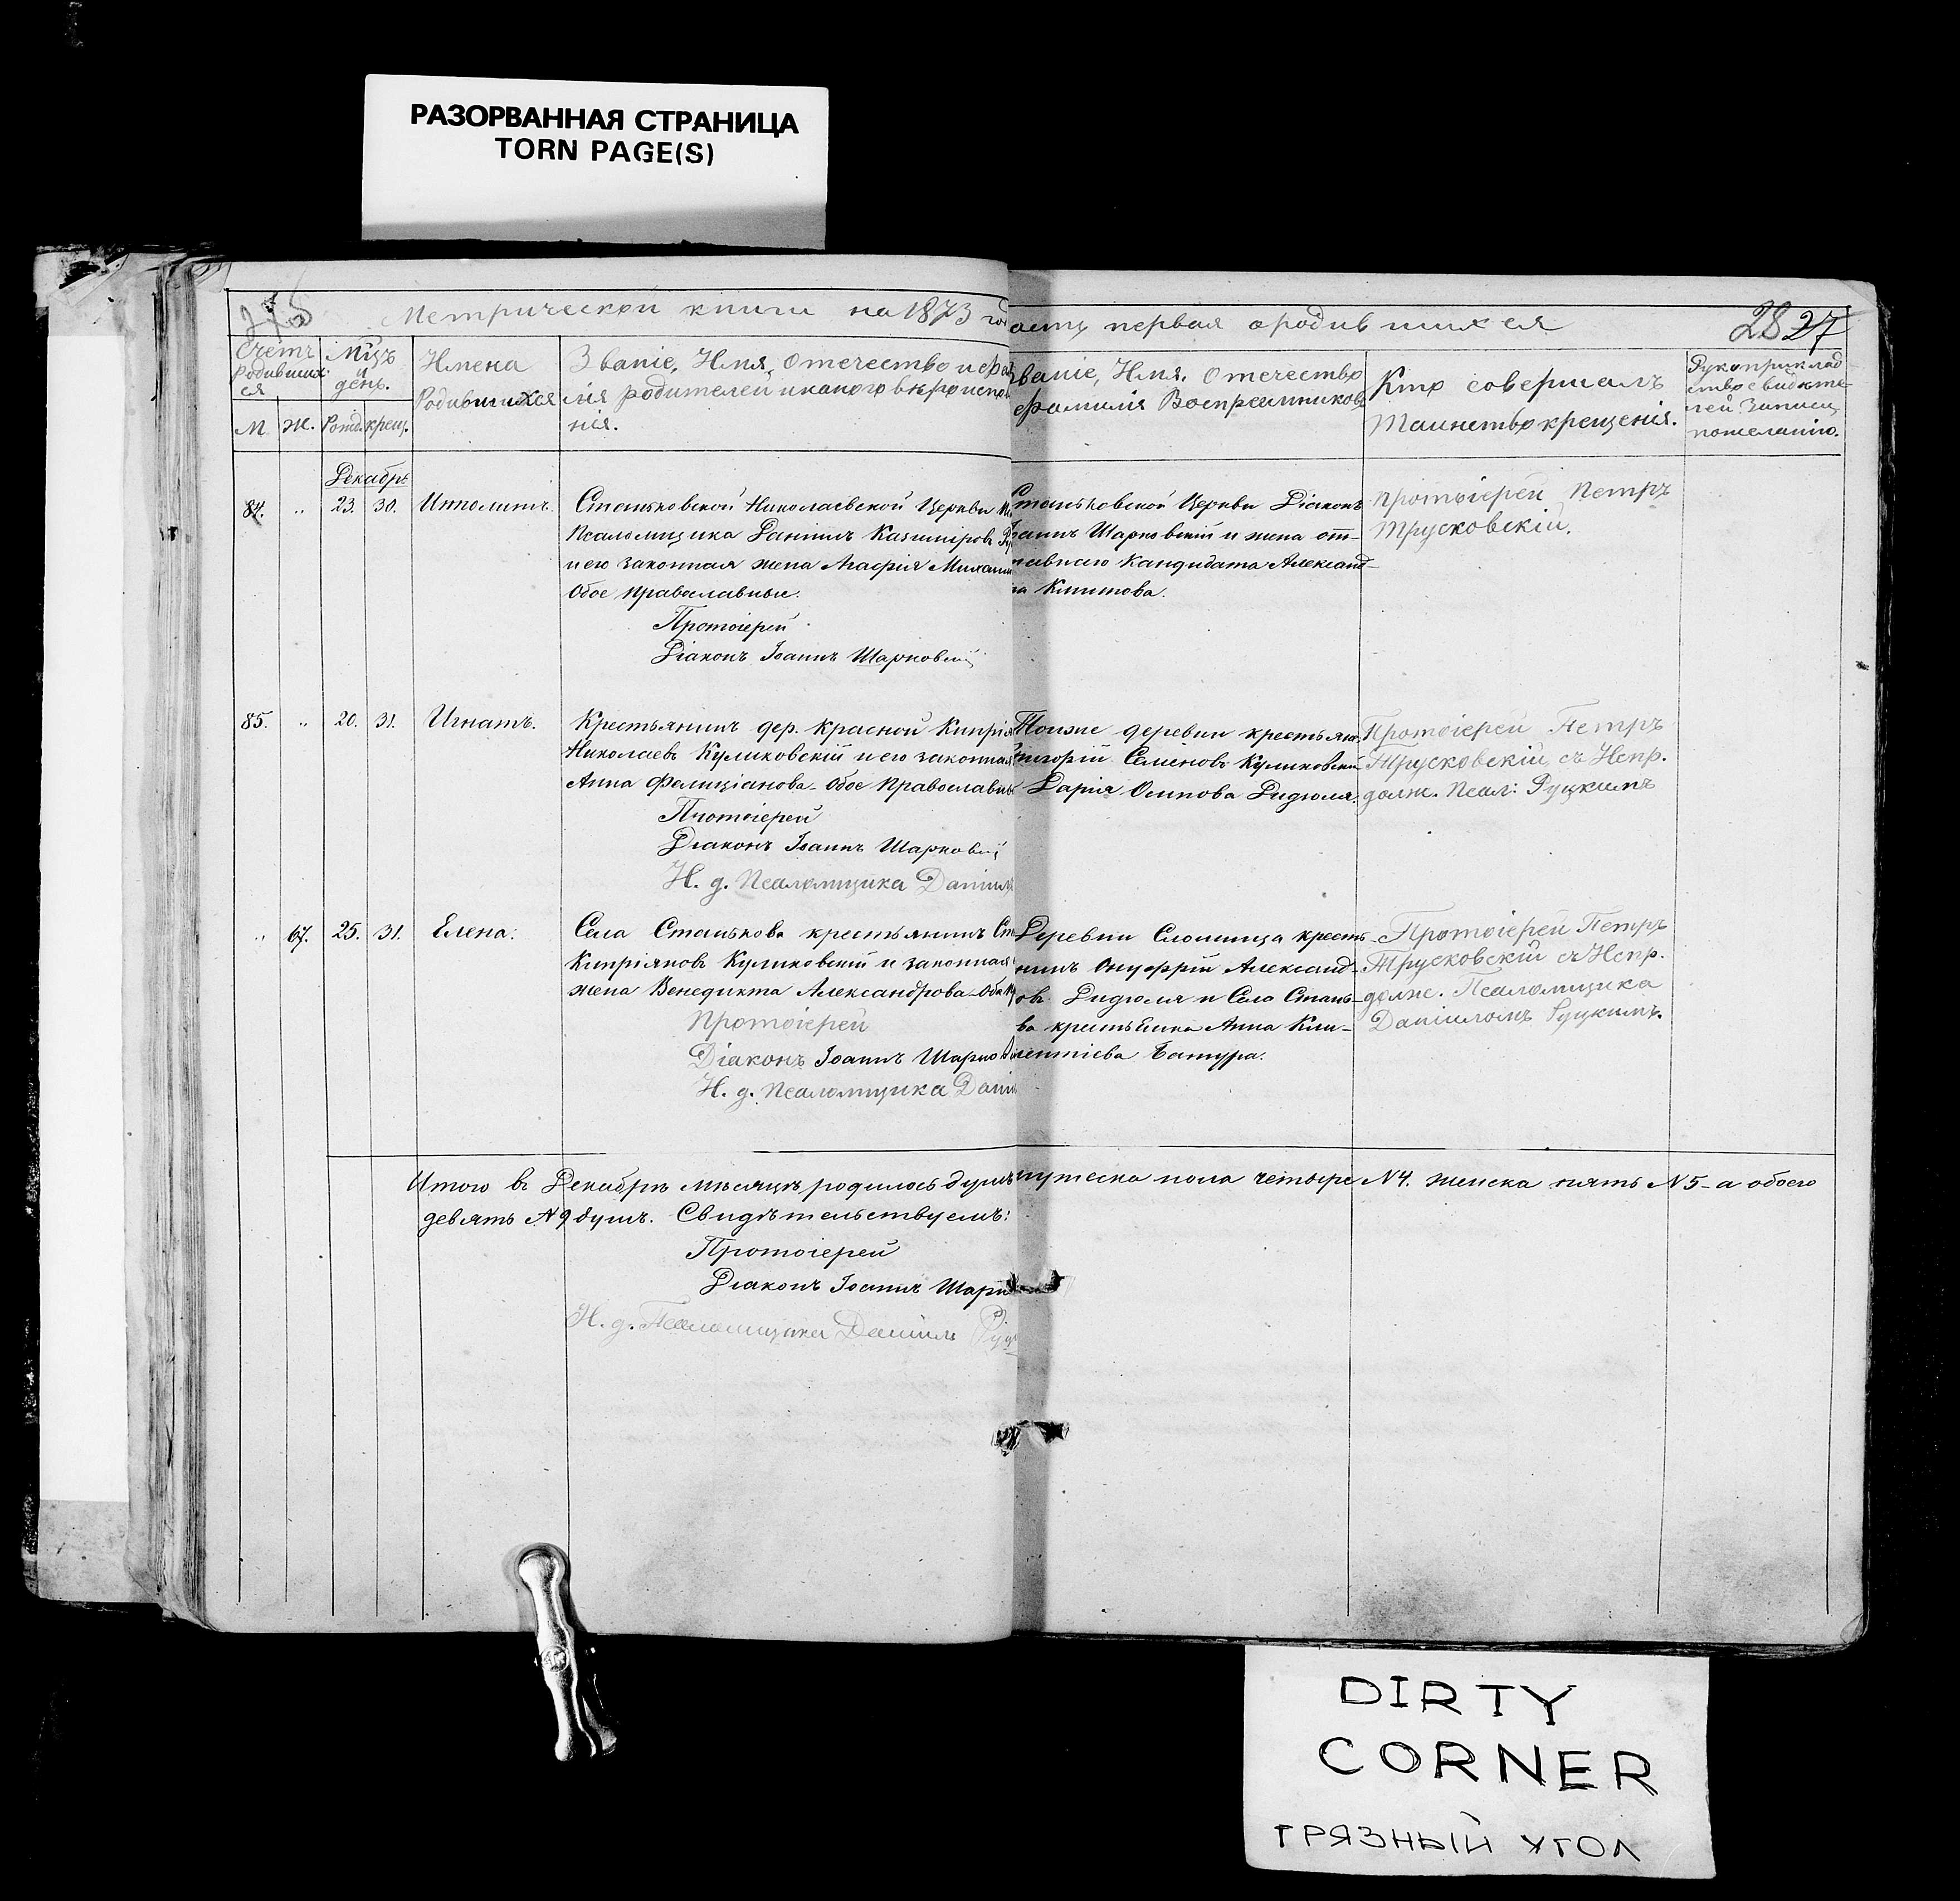 РАЗОРВАННАЯ СТРАНИЦА
TORN PAGE(S)
Метрической книги на 1873 год
асть первая о родившихся
28 27
Счетъ Родившихся
Мцъ и день.
Имена Родившихся
Званіе, Имя, Отечество и фами
лія родителей и какого вѣроиспове
нія.
Званіе, Имя, Отечество
фамилія Воспреемниковъ
Кто совершалъ
Таинство крещенія.
Рукоприклад
ство свидѣте-
лей записи
по желанію.
М. Ж. Рожд. крещ.
Декабрь
84. „ 23. 30. Ипполитъ.
Станьковской Николаевской Церкви
Псаломщика Даніилъ Казимировъ
и его законная жена Агафія Михаил
Обое православные.
Протоіерей
Діаконъ Іоаннъ Шарковскій
Станьковской Церкви Діаконъ
Іоаннъ Шарковскій и жена от-
ставнаго Кандидата Александ-
ра Климова.
Протоіерей Петръ
Трусковскій.
85. „ 20. 31. Игнатъ.
Крестьянинъ дер. Красной Кипріян
Николаевъ Куликовскій и его законная
Анна Фелиціанова - Обое Православные
Протоіерей
Діаконъ Іоаннъ Шарковскій
И. д. Псаломщика Даніилъ
Тоиже деревни крестьяне
Григорій Семеновъ Куликовскій
Дарія Осипова Дидюля.
Протоіерей Петръ
Трусковскій съ Испр.
долж. Псал: Руцкимъ
„ 67. 25. 31. Елена.
Села Станькова крестьянинъ Ст
Кипріяновъ Куликовскій и законная
жена Бенедикта Александрова - Оба
Протоіерей
Діаконъ Іоаннъ Шарков
И. д. Псаломщика Дани
Деревни Слобница кресть-
нинъ Онуфрій Александ-
овъ Дидюля и Села Стань-
ва крестьянка Анна Кли-
ментіева Батура.
Протоіерей Петръ
Трусковскій съ Испр.
долж. Псаломщика
Даніиломъ Руцкимъ.
Итого въ Декабрѣ мѣсяцѣ родилось душъ мужеска пола четыре №4. женска пять №5 - а обоего
девять №9 душъ. Свидѣтельствуемъ:
Протоіерей
Діаконъ Іоаннъ Шарк
И. д. Псаломщика Даніилъ Руц
DIRTY
CORNER
ГРЯЗНЫЙ УГОЛ